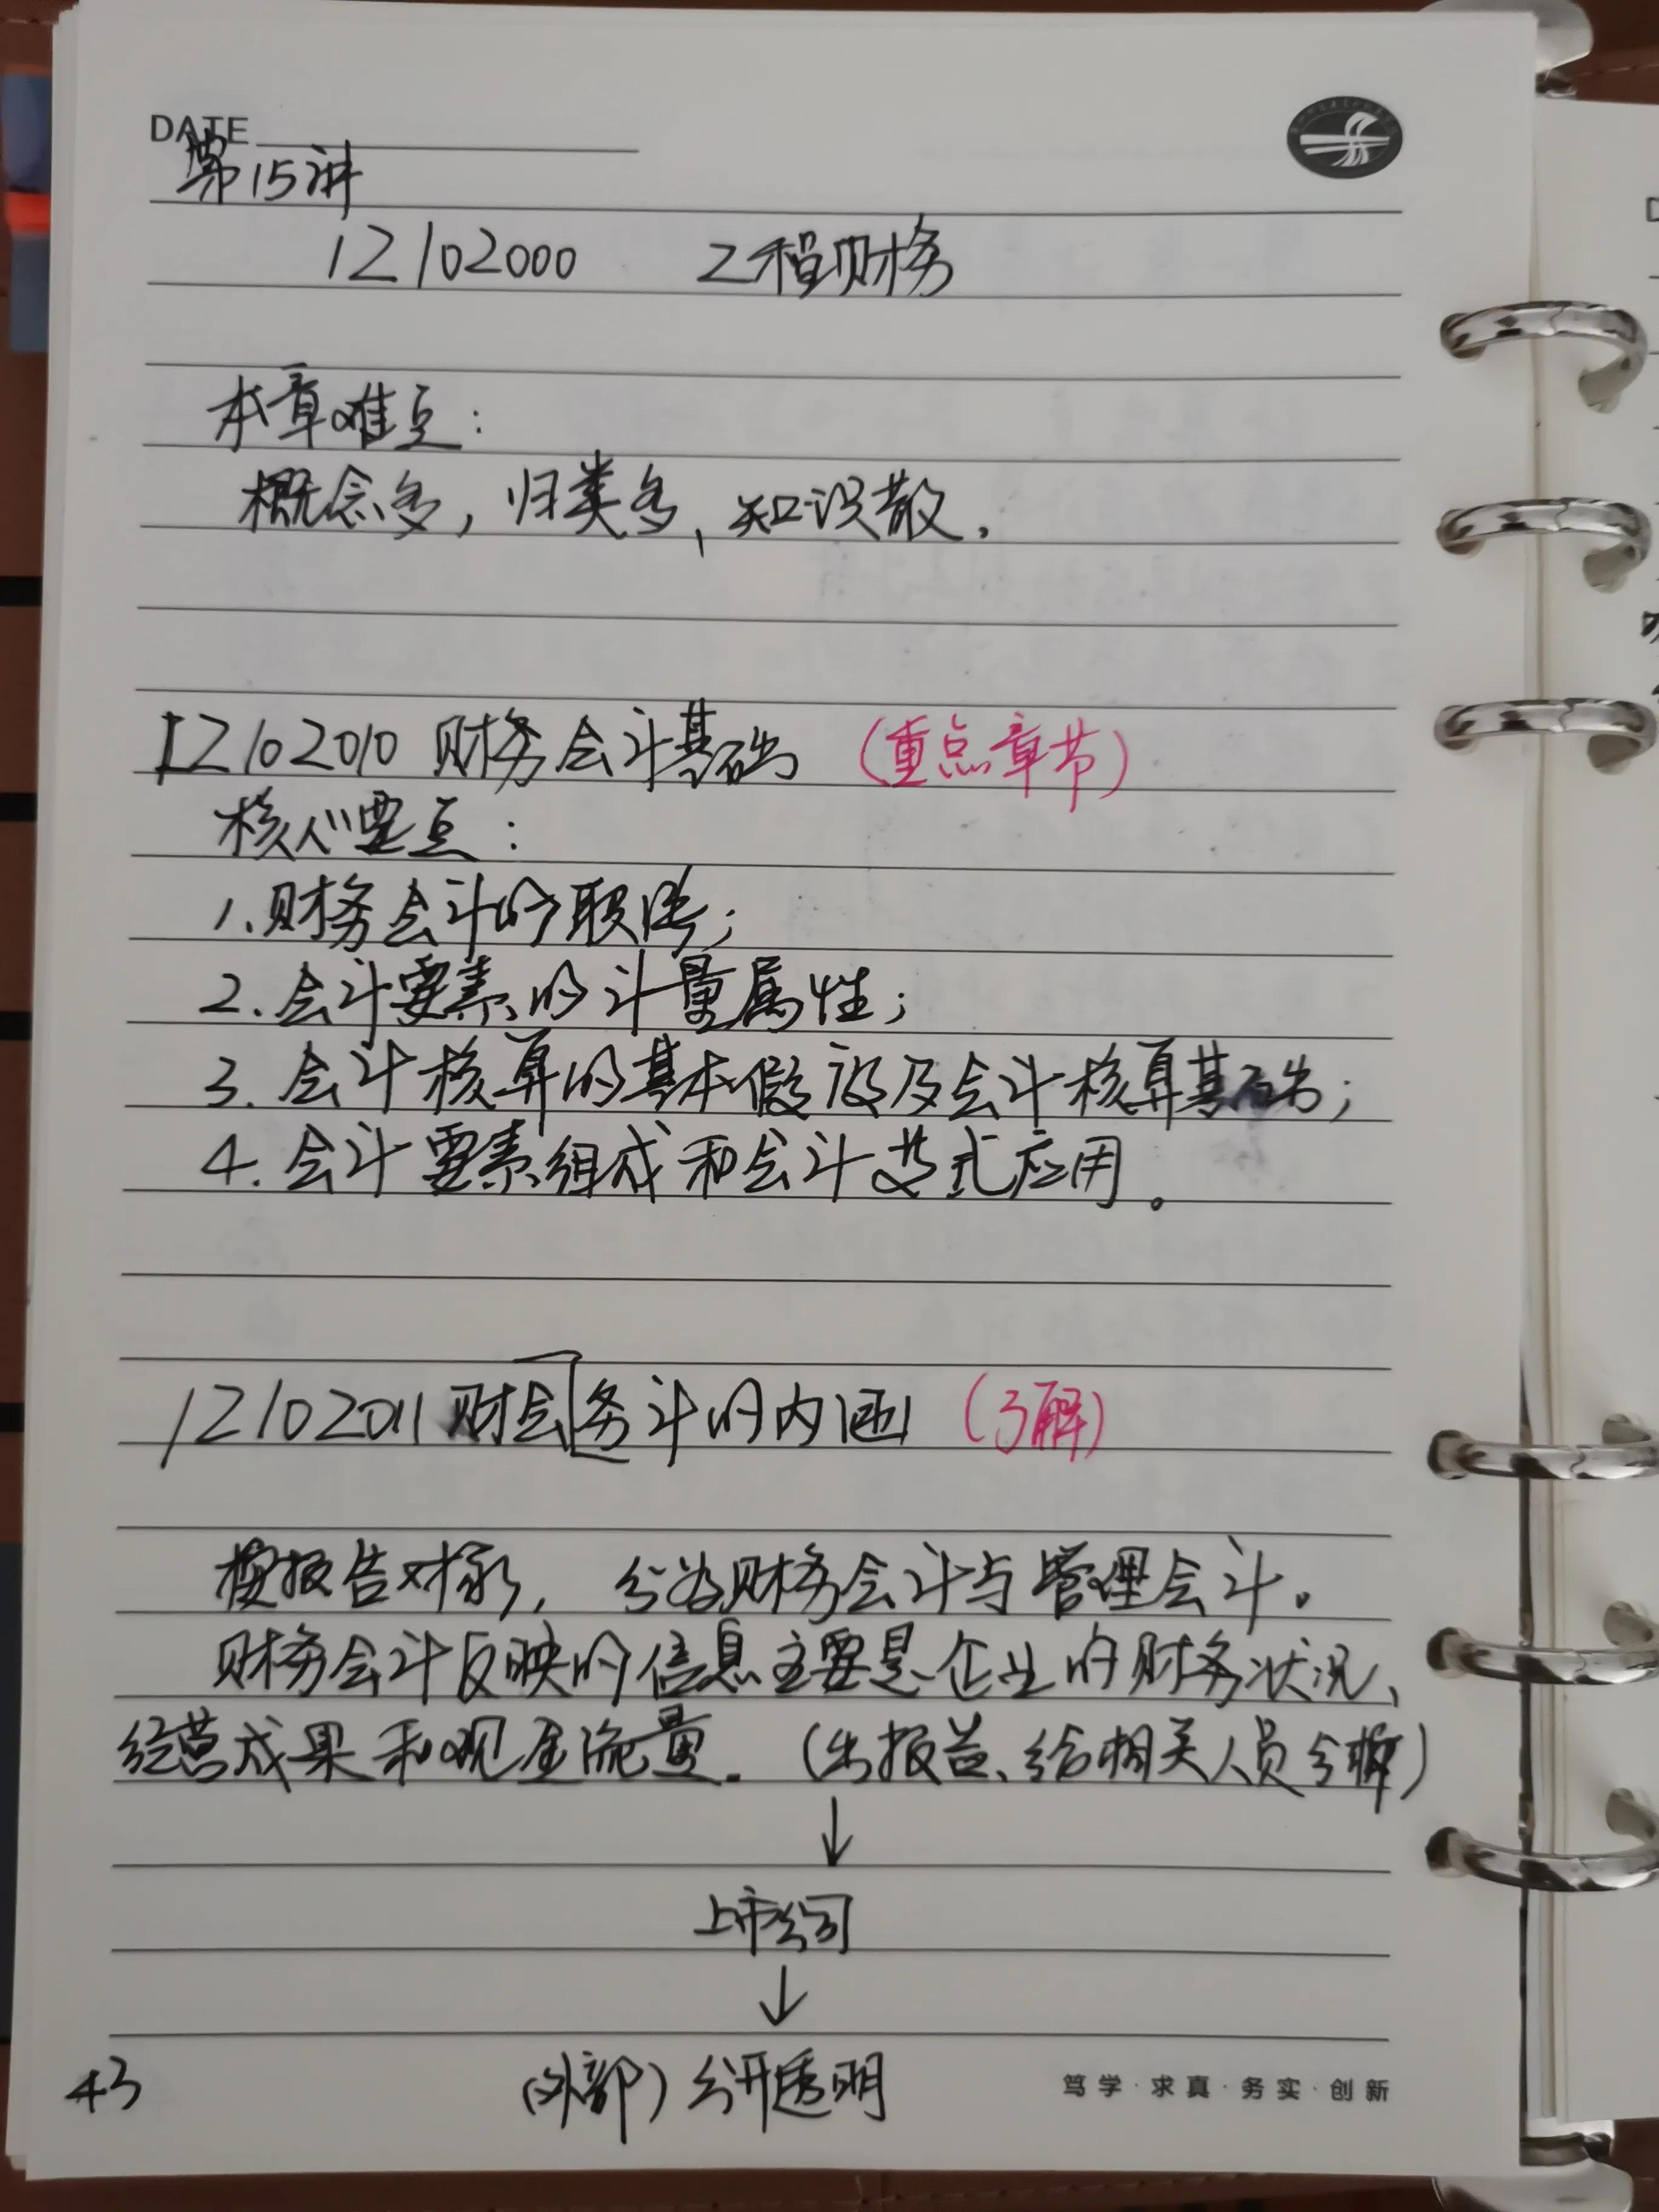 DATE
第15讲
1Z102000 工程财务
本章难点:
概念多,归类多,知识散.
1Z102010 财务会计基础 (重点章节)
核心要点:
1.财务会计的职能;
2.会计要素的计量属性;
3.会计核算的基本假设及会计核算基础;
4.会计要素组成和会计等式应用。
1Z102011 财会务计的内涵 (了解)
按报告对象,分为财务会计与管理会计。
财务会计反映的信息主要是企业的财务状况、
经营成果和现金流量.(出报告、给相关人员分解)
↓
上市公司
↓
(外部)公开透明
43
笃学·求真·务实·创新